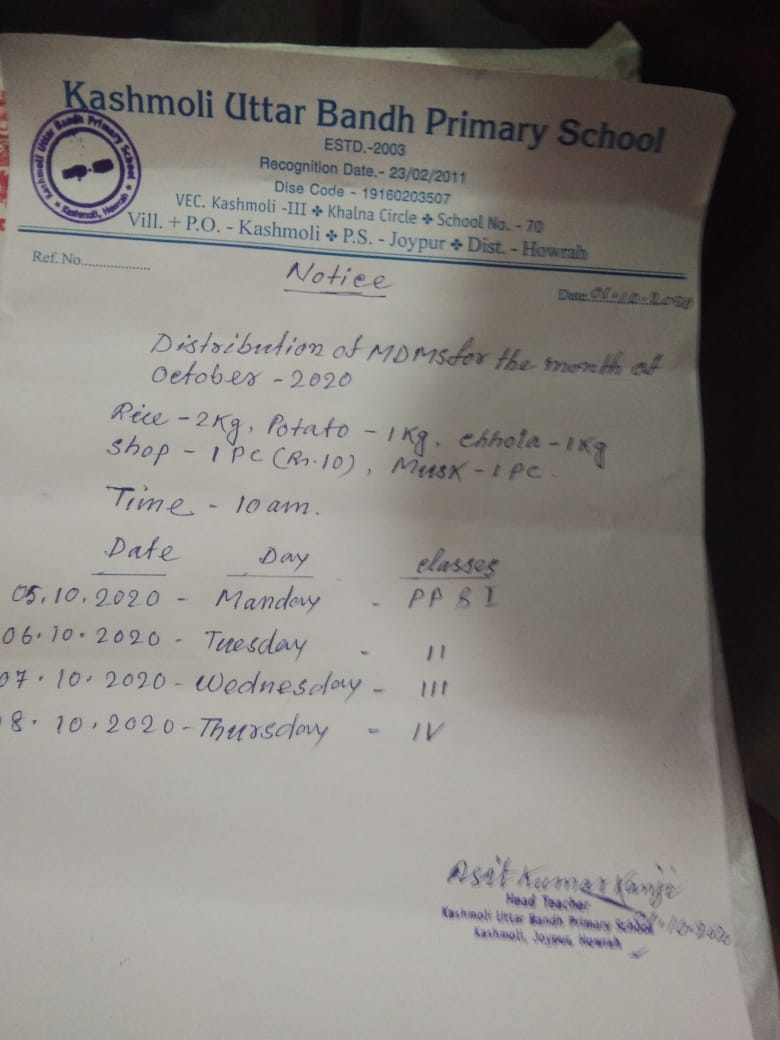 Kashmoli Uttar Bandh Primary School
ESTD.-2003
Recognition Date.- 23/02/2011
Dise Code - 19160203507
VEC. Kashmoli -III ❖ Khalna Circle ❖ School No. - 70
Vill. + P.O. - Kashmoli ❖ P.S. - Joypur ❖ Dist. - Howrah
Kashmoli Uttar Bandh Primary School
Kashmoli, Howrah
Ref. No....................
Notice
Date: 01-10-2020
Distribution of MDMs for the month of
October - 2020
Rice - 2Kg, Potato - 1Kg, chhola - 1Kg
Shop - 1 PC (Rs.10), Musk - 1 PC.
Time - 10 am.
Date Day classes
05.10.2020 - Manday - PP & I
06.10.2020 - Tuesday - II
07.10.2020 - Wednesday - III
8.10.2020 - Thursday - IV
Asit Kumar
Head Teacher
Kashmoli Uttar Bandh Primary School
Kashmoli, Joypur, Howrah